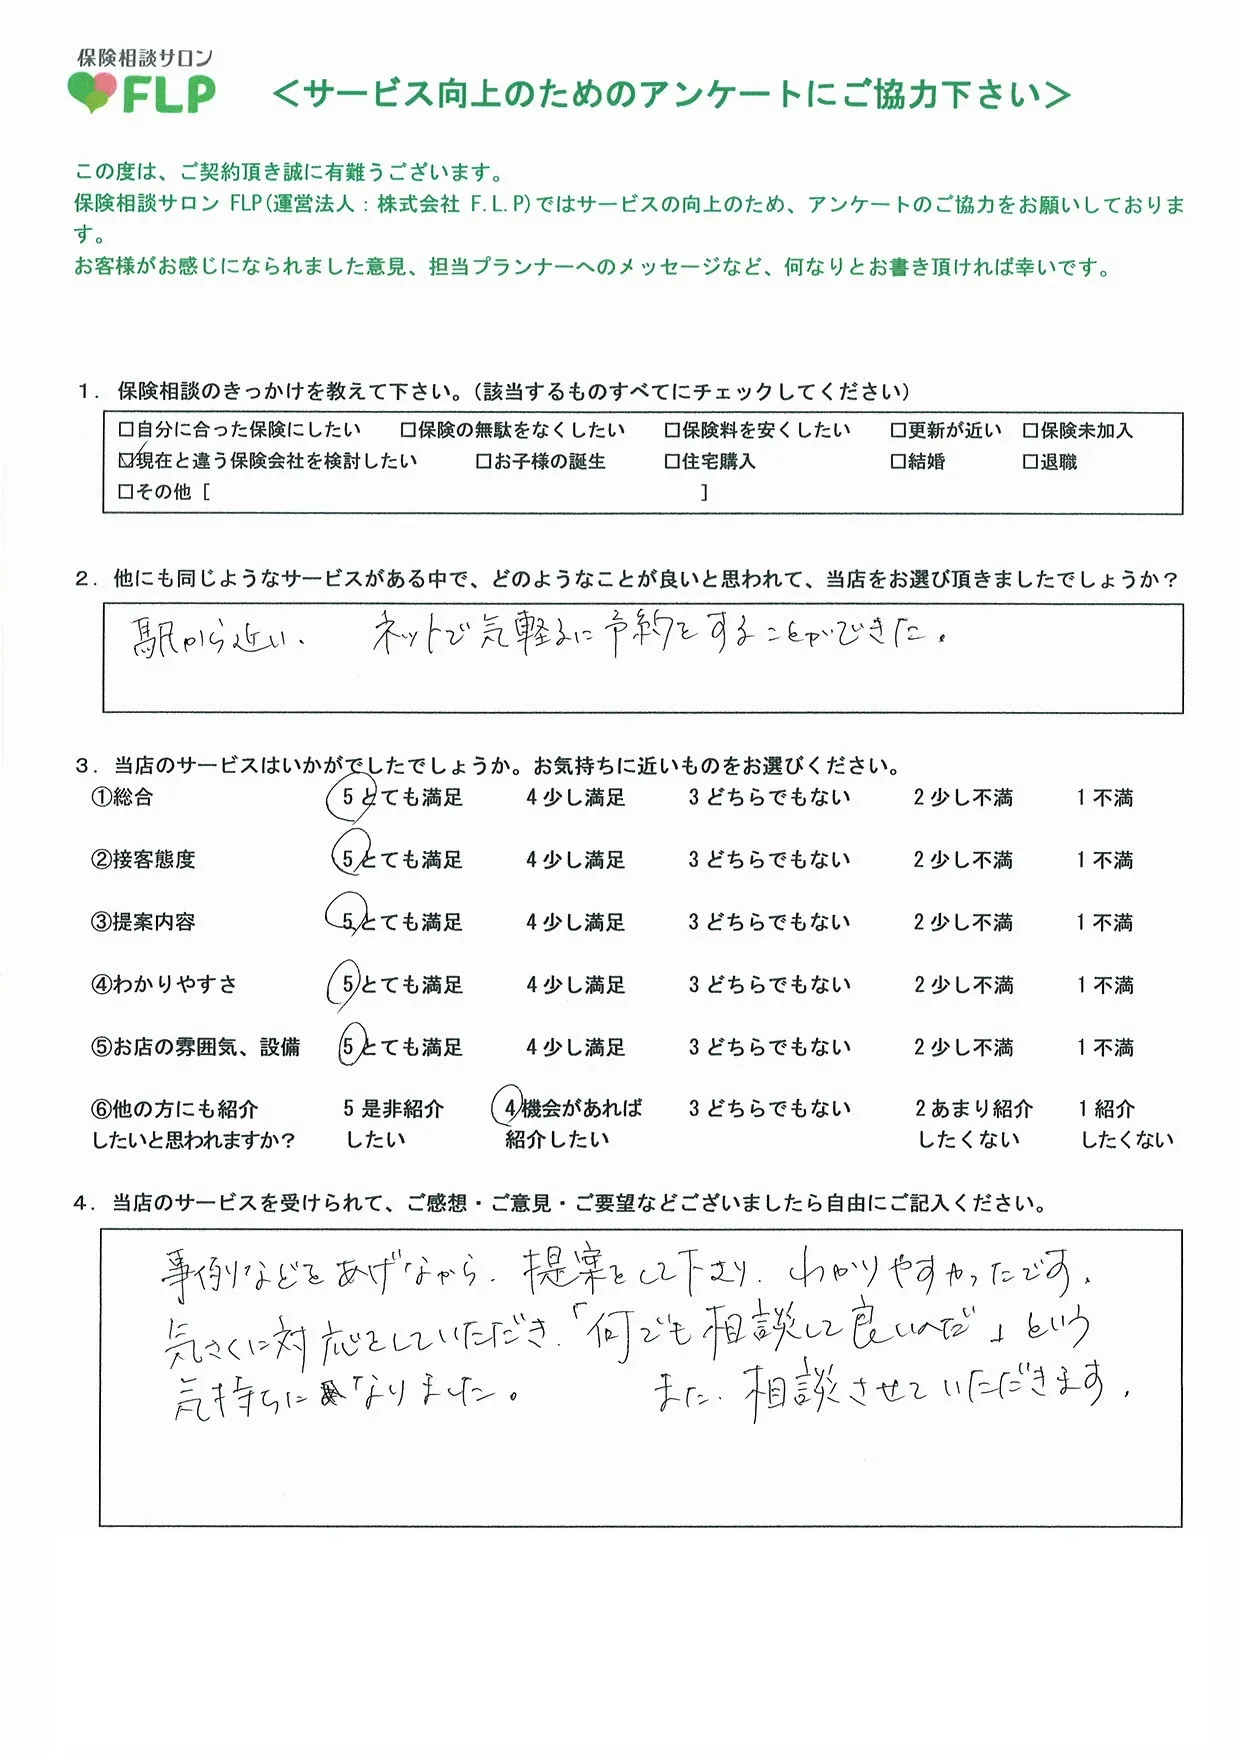 保険相談サロン
FLP
＜サービス向上のためのアンケートにご協力下さい＞
この度は、ご契約頂き誠に有難うございます。
保険相談サロン FLP(運営法人：株式会社 F.L.P)ではサービスの向上のため、アンケートのご協力をお願いしておりま
す。
お客様がお感じになられました意見、担当プランナーへのメッセージなど、何なりとお書き頂ければ幸いです。
１．保険相談のきっかけを教えて下さい。（該当するものすべてにチェックしてください）
□自分に合った保険にしたい □保険の無駄をなくしたい □保険料を安くしたい □更新が近い □保険未加入
☑現在と違う保険会社を検討したい □お子様の誕生 □住宅購入 □結婚 □退職
□その他［ ］
２．他にも同じようなサービスがある中で、どのようなことが良いと思われて、当店をお選び頂きましたでしょうか？
駅から近い. ネットで気軽るに予約をすることができた。
３．当店のサービスはいかがでしたでしょうか。お気持ちに近いものをお選びください。
①総合 5 とても満足 4 少し満足 3 どちらでもない 2 少し不満 1 不満
②接客態度 5 とても満足 4 少し満足 3 どちらでもない 2 少し不満 1 不満
③提案内容 5 とても満足 4 少し満足 3 どちらでもない 2 少し不満 1 不満
④わかりやすさ 5 とても満足 4 少し満足 3 どちらでもない 2 少し不満 1 不満
⑤お店の雰囲気、設備 5 とても満足 4 少し満足 3 どちらでもない 2 少し不満 1 不満
⑥他の方にも紹介 5 是非紹介 4 機会があれば 3 どちらでもない 2 あまり紹介 1 紹介
したいと思われますか？ したい 紹介したい したくない したくない
４．当店のサービスを受けられて、ご感想・ご意見・ご要望などございましたら自由にご記入ください。
事例などをあげながら、提案をして下さり、わかりやすかったです。
気さくに対応をしていただき、「何でも相談して良いんだ」という
気持ちになりました。 また、相談させていただきます。